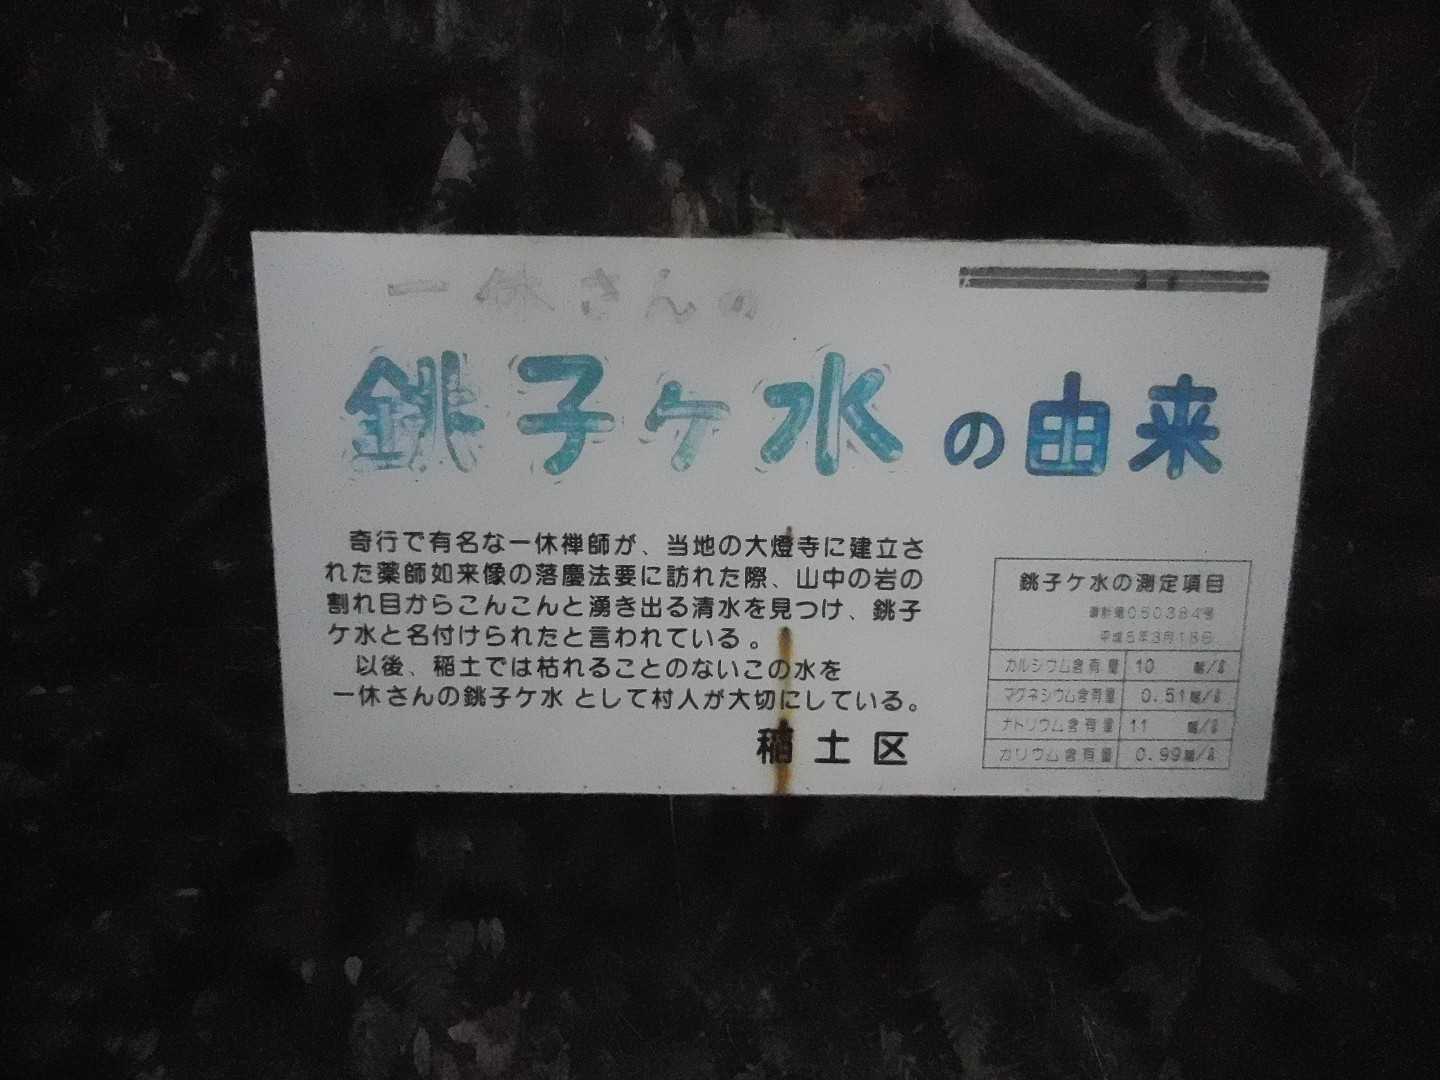 一休さんの
銚子ヶ水の由来
奇行で有名な一休禅師が、当地の大燈寺に建立さ
れた薬師如来像の落慶法要に訪れた際、山中の岩の
割れ目からこんこんと湧き出る清水を見つけ、銚子
ケ水と名付けられたと言われている。
以後、稲土では枯れることのないこの水を
一休さんの銚子ケ水 として村人が大切にしている。
稲土区
銚子ケ水の測定項目
050384号
平成5年3月18日
カルシウム含有量 10 mg/ℓ
マグネシウム含有量 0.51mg/ℓ
ナトリウム含有量 11 mg/ℓ
カリウム含有量 0.99mg/ℓ